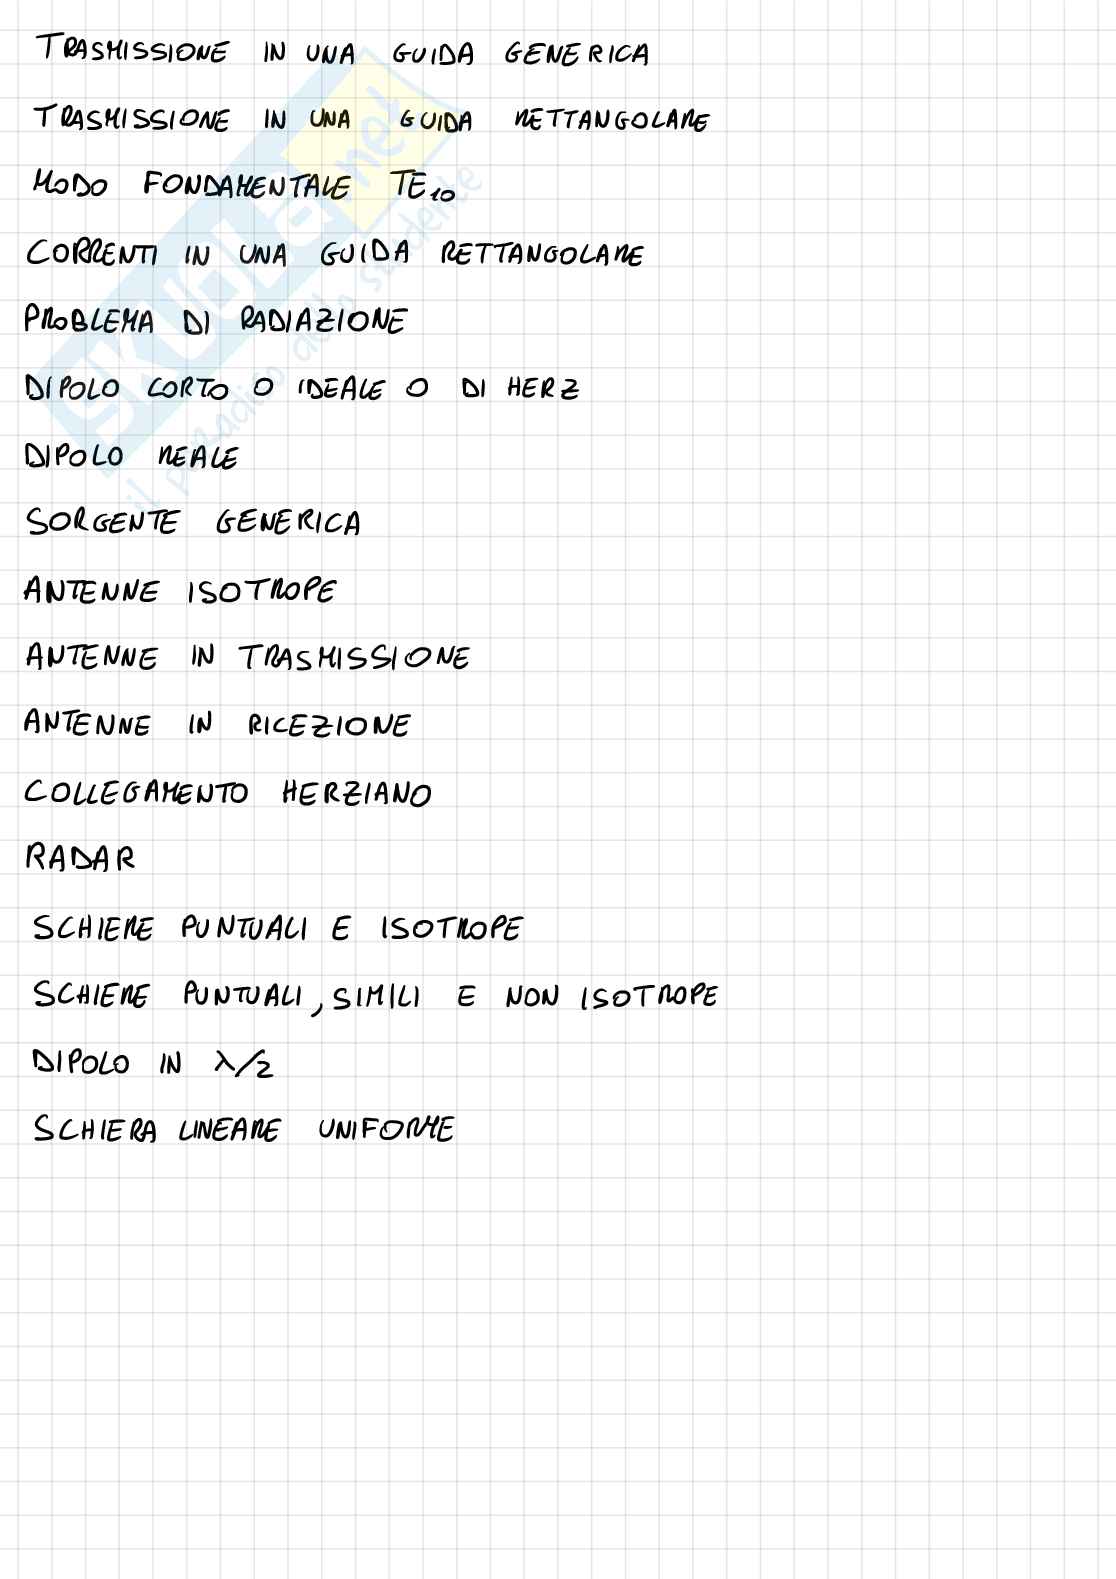 TRASMISSIONE IN UNA GUIDA GENERICA
TRASMISSIONE IN UNA GUIDA RETTANGOLARE
MODO FONDAMENTALE TE₁₀
CORRENTI IN UNA GUIDA RETTANGOLARE
PROBLEMA DI RADIAZIONE
DIPOLO CORTO O IDEALE O DI HERZ
DIPOLO REALE
SORGENTE GENERICA
ANTENNE ISOTROPE
ANTENNE IN TRASMISSIONE
ANTENNE IN RICEZIONE
COLLEGAMENTO HERZIANO
RADAR
SCHIERE PUNTUALI E ISOTROPE
SCHIERE PUNTUALI, SIMILI E NON ISOTROPE
DIPOLO IN λ/2
SCHIERA LINEARE UNIFORME
SKUOLA.net
il paradiso dello studente